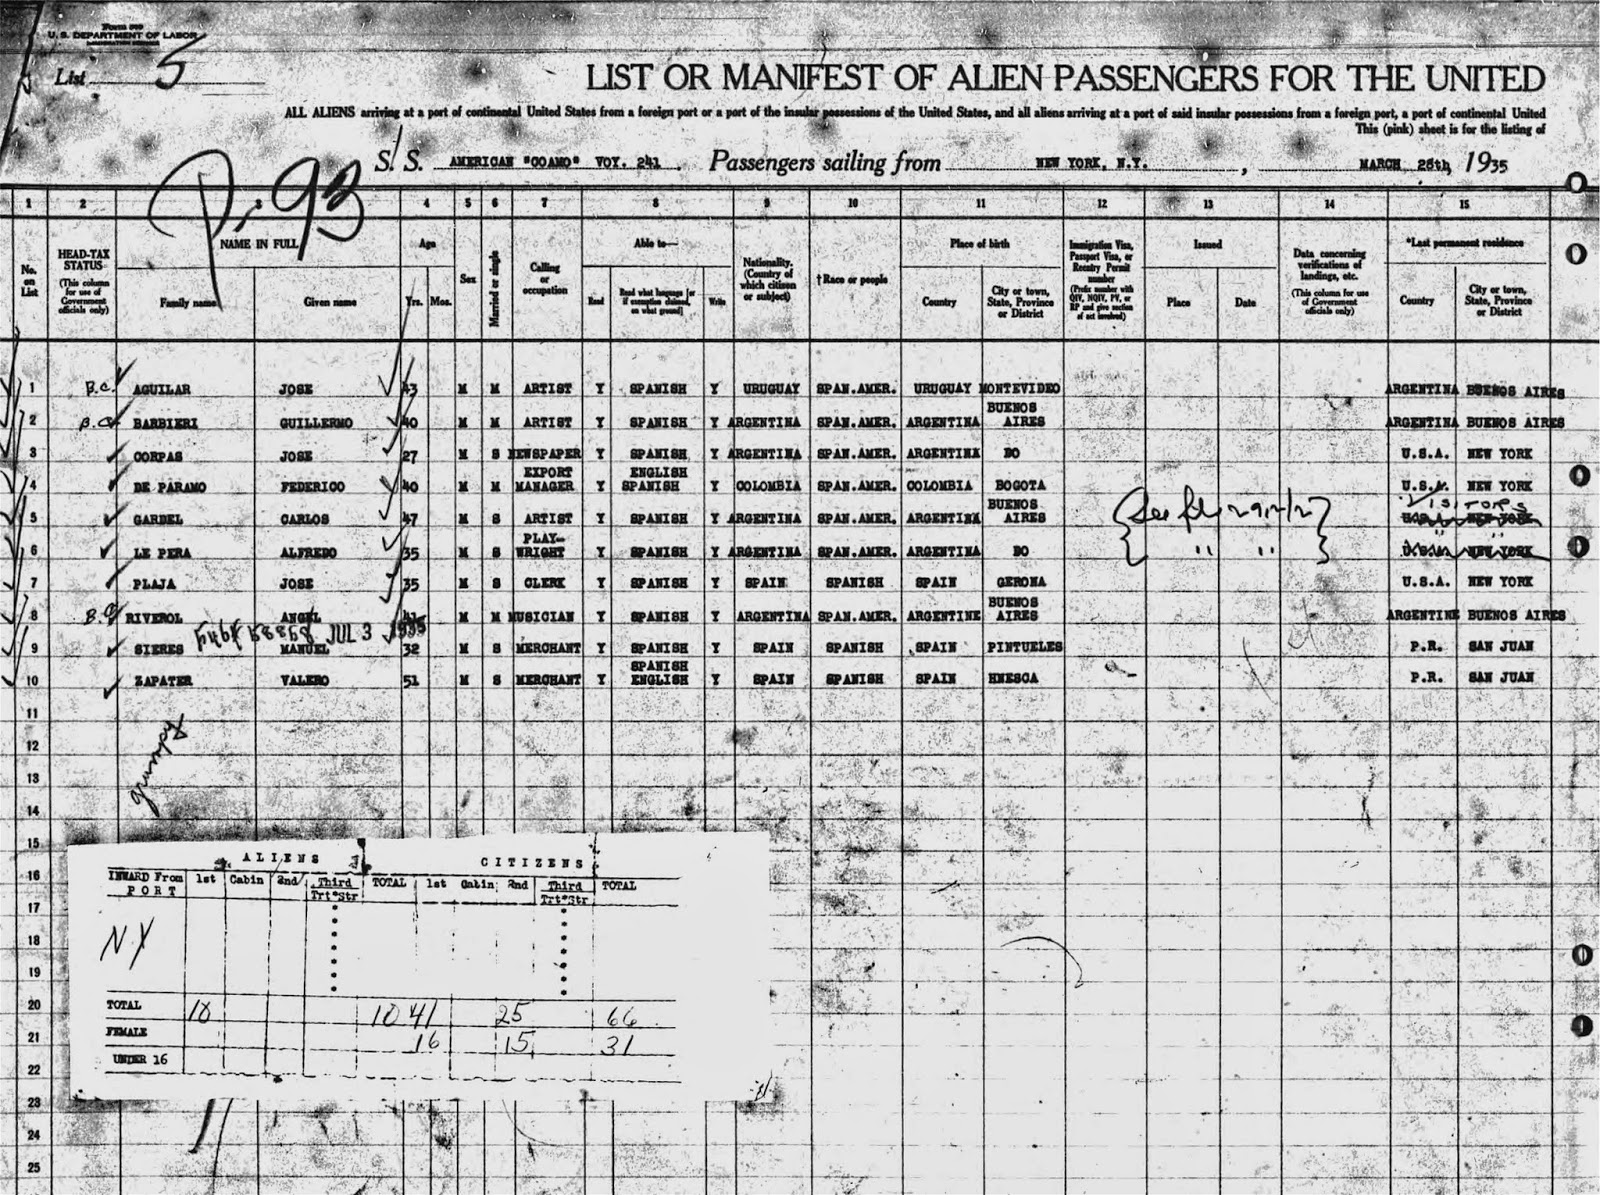 Form 500
U. S. DEPARTMENT OF LABOR
IMMIGRATION SERVICE
List 5
LIST OR MANIFEST OF ALIEN PASSENGERS FOR THE UNITED
ALL ALIENS arriving at a port of continental United States from a foreign port or a port of the insular possessions of the United States, and all aliens arriving at a port of said insular possessions from a foreign port, a port of continental United
This (pink) sheet is for the listing of
S. S. AMERICAN "COAMO" VOY. 241 Passengers sailing from NEW YORK, N.Y., MARCH 28th, 1935
P. 93
1 2 3 4 5 6 7 8 9 10 11 12 13 14 15
No. on List
HEAD-TAX STATUS (This column for use of Government officials only)
NAME IN FULL
Family name Given name
Age
Yrs. Mos.
Sex
Married or single
Calling or occupation
Able to—
Read Read what language [or if exemption claimed, on what ground] Write
Nationality. (Country of which citizen or subject)
†Race or people
Place of birth
Country City or town, State, Province or District
Immigration Visa, Passport Visa, or Reentry Permit number (Prefix number with QIV, NQIV, PV, or RP and give section of act involved)
Issued
Place Date
Data concerning verifications of landings, etc. (This column for use of Government officials only)
*Last permanent residence
Country City or town, State, Province or District
1 B.C. AGUILAR JOSE 43 M M ARTIST Y SPANISH Y URUGUAY SPAN.AMER. URUGUAY MONTEVIDEO ARGENTINA BUENOS AIRES
2 B.C. BARBIERI GUILLERMO 40 M M ARTIST Y SPANISH Y ARGENTINA SPAN.AMER. ARGENTINA BUENOS AIRES ARGENTINA BUENOS AIRES
3 CORPAS JOSE 27 M S NEWSPAPER Y SPANISH Y ARGENTINA SPAN.AMER. ARGENTINA DO U.S.A. NEW YORK
4 DE PARAMO FEDERICO 40 M M EXPORT MANAGER Y ENGLISH SPANISH Y COLOMBIA SPAN.AMER. COLOMBIA BOGOTA U.S.A. NEW YORK
5 GARDEL CARLOS 47 M S ARTIST Y SPANISH Y ARGENTINA SPAN.AMER. ARGENTINA BUENOS AIRES See VISITORS NEW YORK
6 LE PERA ALFREDO 35 M S PLAY-WRIGHT Y SPANISH Y ARGENTINA SPAN.AMER. ARGENTINA DO " " " " U.S.A. NEW YORK
7 PLAJA JOSE 35 M S CLERK Y SPANISH Y SPAIN SPANISH SPAIN GERONA U.S.A. NEW YORK
8 B.C. RIVEROL ANGEL 41 M M MUSICIAN Y SPANISH Y ARGENTINA SPAN.AMER. ARGENTINE BUENOS AIRES ARGENTINE BUENOS AIRES
JUL 3 1935
9 SIERES MANUEL 32 M S MERCHANT Y SPANISH Y SPAIN SPANISH SPAIN PINTUELES P.R. SAN JUAN
10 ZAPATER VALERO 51 M S MERCHANT Y SPANISH ENGLISH Y SPAIN SPANISH SPAIN HNESCA P.R. SAN JUAN
11
12
13
14
15
16
17
18
19
20
21
22
23
24
25
ALIENS CITIZENS
INWARD From PORT 1st Cabin 2nd Third Trt*Str TOTAL 1st Cabin 2nd Third Trt*Str TOTAL
NY
TOTAL 10 10 41 25 66
FEMALE 16 15 31
UNDER 16